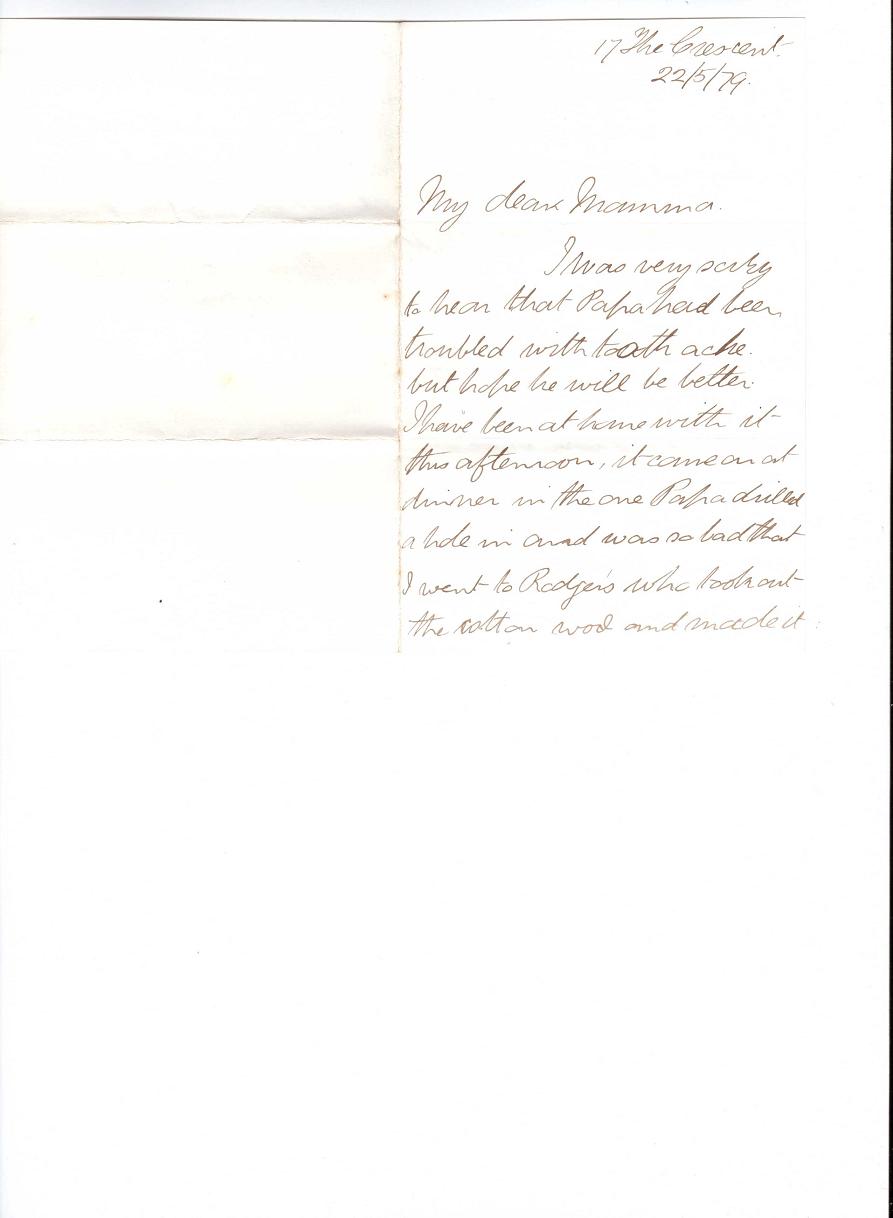 17 The Crescent.
22/5/79.
My dear Mamma.
I was very sorry
to hear that Papa had been
troubled with tooth ache.
but hope he will be better.
I have been at home with it
this afternoon, it came on at
dinner in the one Papa drilled
a hole in and was so bad that
I went to Rodgers who took out
the cotton wool and made it